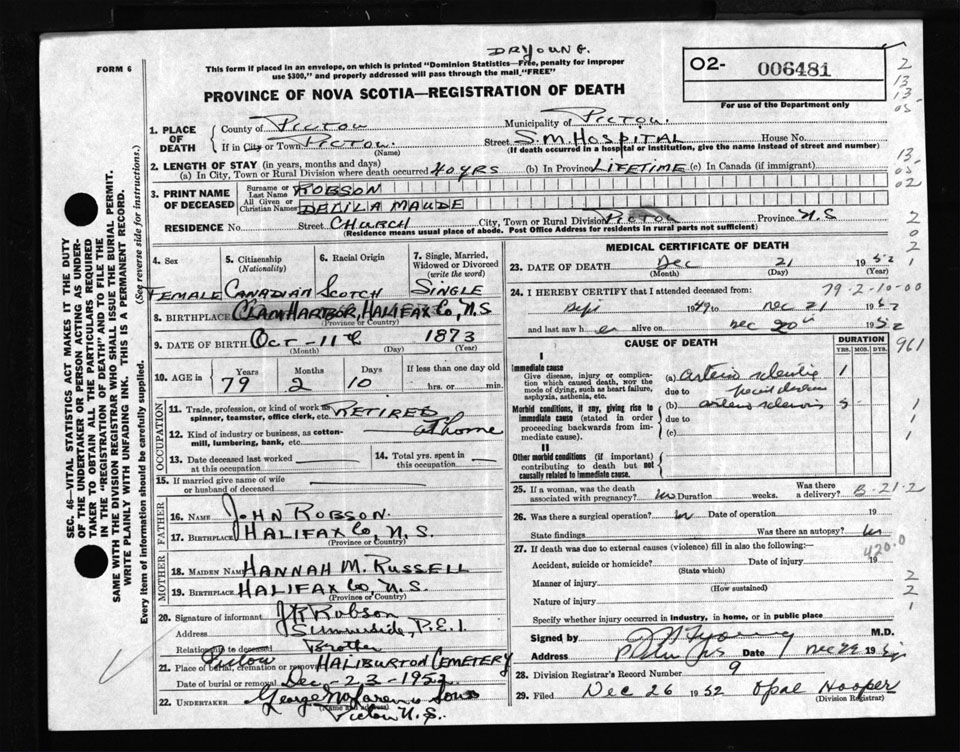 DR YOUNG.
FORM 6
This form if placed in an envelope, on which is printed "Dominion Statistics—Free, penalty for improper
use $300," and properly addressed will pass through the mail "FREE"
PROVINCE OF NOVA SCOTIA—REGISTRATION OF DEATH
O2- 006481
For use of the Department only
2
13
13
05
13
03
02
2
0
2
1
SEC. 46—VITAL STATISTICS ACT MAKES IT THE DUTY
OF THE UNDERTAKER OR PERSON ACTING AS UNDER-
TAKER TO OBTAIN ALL THE PARTICULARS REQUIRED
IN THE "REGISTRATION OF DEATH" AND TO FILE THE
SAME WITH THE DIVISION REGISTRAR WHO SHALL ISSUE THE BURIAL PERMIT.
WRITE PLAINLY WITH UNFADING INK. THIS IS A PERMANENT RECORD.
Every item of information should be carefully supplied. (See reverse side for instructions.)
1. PLACE OF DEATH
County of PICTOU Municipality of PICTOU.
If in City or Town PICTOU. Street S.M. HOSPITAL House No.
(Name) (If death occurred in a hospital or institution, give the name instead of street and number)
2. LENGTH OF STAY (in years, months and days)
(a) In City, Town or Rural Division where death occurred 40 YRS (b) In Province LIFETIME (c) In Canada (if immigrant)
3. PRINT NAME OF DECEASED
Surname or Last Name ROBSON
All Given or Christian Names DELILA MAUDE
RESIDENCE No. Street CHURCH City, Town or Rural Division PICTOU Province N.S
(Residence means usual place of abode. Post Office Address for residents in rural parts not sufficient)
4. Sex
5. Citizenship (Nationality)
6. Racial Origin
7. Single, Married, Widowed or Divorced (write the word)
FEMALE CANADIAN SCOTCH SINGLE
8. BIRTHPLACE CLAM HARBOR, HALIFAX Co, N.S
(Province or Country)
9. DATE OF BIRTH OCT - 11th 1873
(Month) (Day) (Year)
10. AGE in Years Months Days If less than one day old
79 2 10 hrs. or min.
OCCUPATION
11. Trade, profession, or kind of work as spinner, teamster, office clerk, etc. RETIRED
12. Kind of industry or business, as cotton-mill, lumbering, bank, etc. at home
13. Date deceased last worked at this occupation
14. Total yrs. spent in this occupation
15. If married give name of wife or husband of deceased
FATHER
16. NAME JOHN ROBSON
17. BIRTHPLACE HALIFAX Co, N.S.
(Province or Country)
MOTHER
18. MAIDEN NAME HANNAH M. RUSSELL
19. BIRTHPLACE HALIFAX Co N.S.
(Province or Country)
20. Signature of informant J R Robson
Address Summerside, P.E.I.
Relationship to deceased Brother
21. Place of burial, cremation or removal Pictou HALIBURTON CEMETERY
Date of burial or removal Dec - 23 - 1952
22. UNDERTAKER George McLaren & Sons
(Name and Address)
Pictou N.S.
MEDICAL CERTIFICATE OF DEATH
23. DATE OF DEATH Dec 21 1952
(Month) (Day) (Year)
24. I HEREBY CERTIFY that I attended deceased from: 79-2-10-00
Sept 1949 to Dec 21 1952
and last saw her alive on Dec 20th 1952
CAUSE OF DEATH DURATION
YRS. MOS. DYS.
961
I
Immediate cause
Give disease, injury or complication which caused death, NOT the mode of dying, such as heart failure, asphyxia, asthenia, etc.
(a) arterio sclerotic 1
due to
Morbid conditions, if any, giving rise to immediate cause (stated in order proceeding backwards from immediate cause).
(b) arterio sclerosis 5 -
due to
(c)
II
Other morbid conditions (if important) contributing to death but not causally related to immediate cause.
1
1
1
25. If a woman, was the death associated with pregnancy? no Duration weeks. Was there a delivery? B-21-2
26. Was there a surgical operation? no Date of operation 19
State findings Was there an autopsy? no
420.0
27. If death was due to external causes (violence) fill in also the following:—
Accident, suicide or homicide? Date of injury 19
(State which)
Manner of injury
(How sustained)
Nature of injury
2
2
1
Specify whether injury occurred in industry, in home, or in public place
Signed by J A Young M.D.
Address Pictou NS Date Dec 29 1952
28. Division Registrar's Record Number 9
29. Filed Dec 26 1952 Opal Hooper
(Division Registrar)